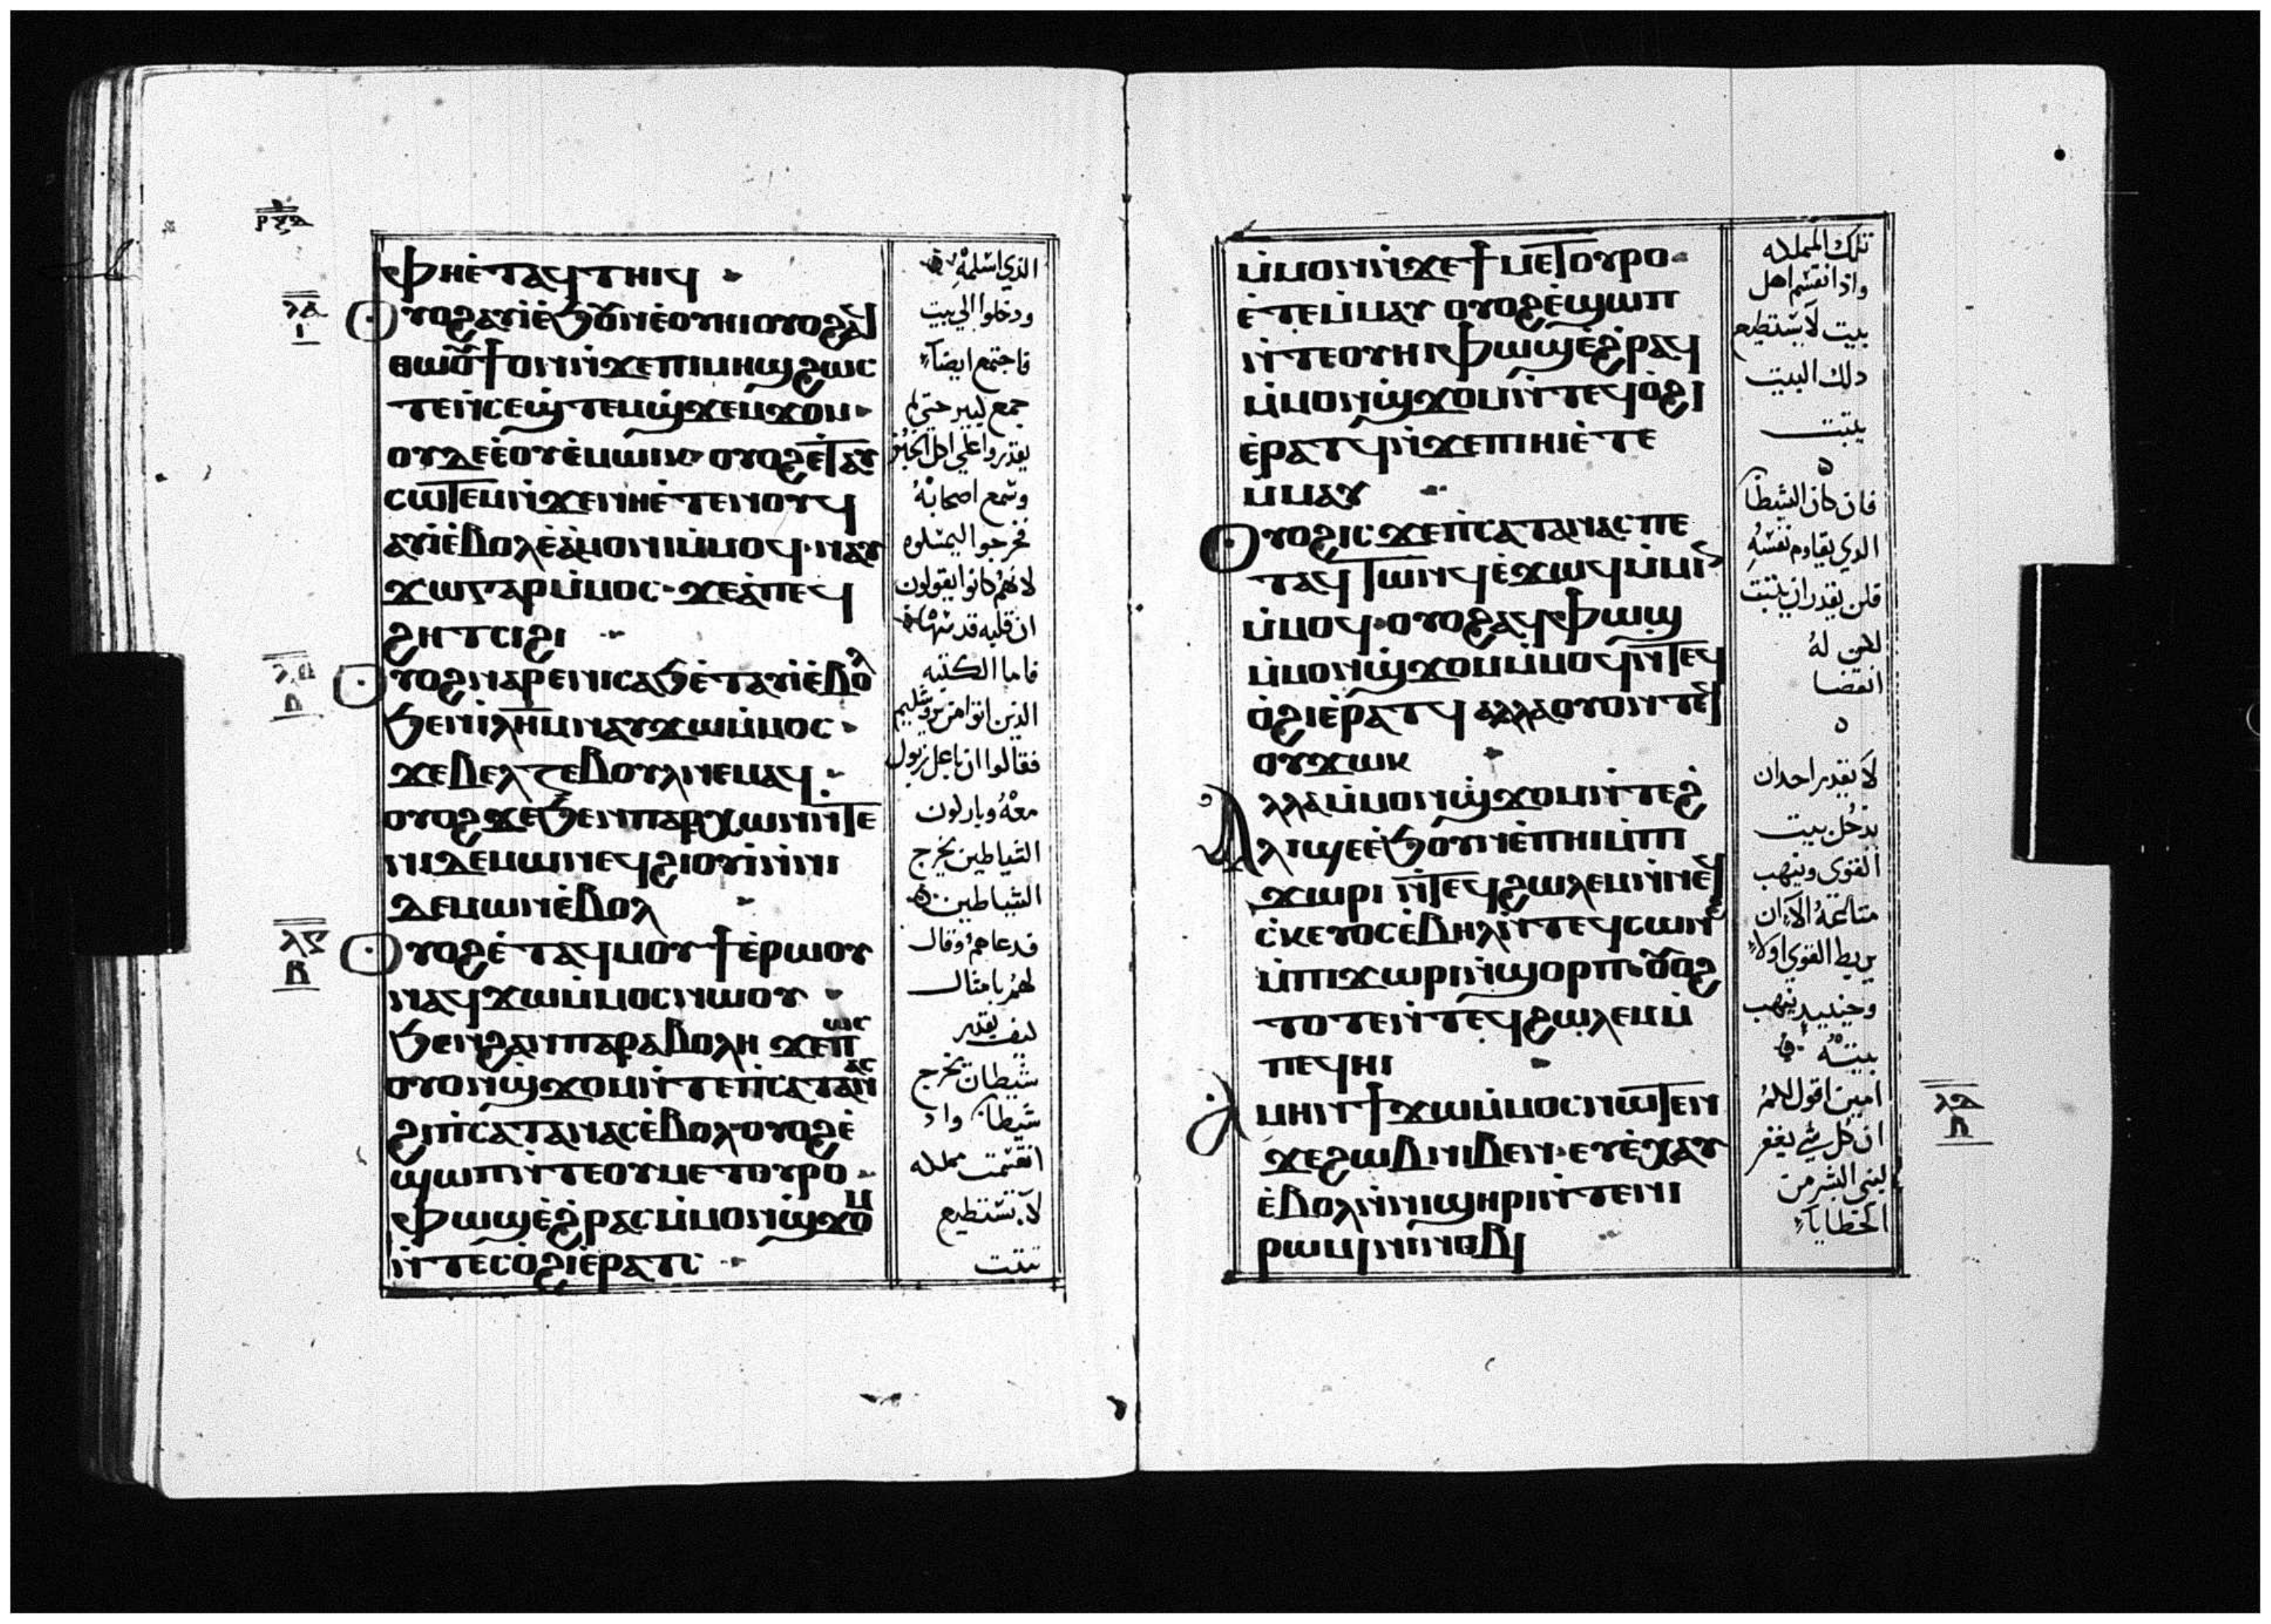 ⲫⲏⲉ̀ⲧⲁϥⲧⲏⲓϥ
ⲟⲩⲟϩⲁⲩⲓ̀ⲉ̀ϧⲟⲩⲛⲉ̀ⲟⲩⲏⲓⲟⲩⲟϩⲁϥ
ⲑⲱⲟⲩϯⲟⲛⲛ̀ϫⲉⲡⲓⲙⲏϣϩⲱⲥ
ⲧⲉⲛ̀ⲥⲉϣ̀ⲧⲉⲙϣ̀ϫⲉⲙϫⲟⲙ
ⲟⲩⲇⲉⲉ̀ⲟⲩⲉ̀ⲙⲱⲓⲕ ⲟⲩⲟϩⲉ̀ⲧⲁⲩ
ⲥⲱⲧⲉⲙⲛ̀ϫⲉⲛⲏⲉ̀ⲧⲉⲛⲟⲩϥ
ⲁⲩⲓ̀ⲉ̀ⲃⲟⲗⲉ̀ⲁ̀ⲙⲟⲛⲓⲙ̀ⲙⲟϥ ⲛⲁⲩ
ϫⲱⲅⲁⲣⲙ̀ⲙⲟⲥ ϫⲉⲁ̀ⲡⲉϥ
ϩⲏⲧⲥⲓϩⲓ
ⲟⲩⲟϩⲛⲁⲣⲉⲛⲓⲥⲁϧⲉ̀ⲧⲁⲩⲓ̀ⲉ̀ⲃⲟⲗ
ϧⲉⲛⲓ̀ⲗⲏⲙⲛⲁⲩϫⲱⲙ̀ⲙⲟⲥ
ϫⲉⲃⲉⲗⲍⲉⲃⲟⲩⲗⲛⲉⲙⲁϥ
ⲟⲩⲟϩϫⲉϧⲉⲛⲡⲁⲣⲭⲱⲛⲛ̀ⲧⲉ
ⲛⲓⲇⲉⲙⲱⲛⲉϥϩⲓⲟⲩⲓ̀ⲛ̀ⲛⲓ
ⲇⲉⲙⲱⲛⲉ̀ⲃⲟⲗ
ⲟⲩⲟϩⲉ̀ⲧⲁϥⲙⲟⲩϯⲉ̀ⲣⲱⲟⲩ
ⲛⲁϥϫⲱⲙ̀ⲙⲟⲥⲛⲱⲟⲩ
ϧⲉⲛϩⲁⲛⲡⲁⲣⲁⲃⲟⲗⲏ ϫⲉⲡⲱⲥ
ⲟⲩⲟⲛϣ̀ϫⲟⲙⲛ̀ⲧⲉⲡ̀ⲥⲁⲧⲁⲛⲁⲥ
ϩⲓⲡ̀ⲥⲁⲧⲁⲛⲁⲥⲉ̀ⲃⲟⲗ ⲟⲩⲟϩⲉ̀
ϣⲱⲡⲛ̀ⲧⲉⲟⲩⲙⲉⲧⲟⲩⲣⲟ
ⲫⲱϣⲉ̀ϩ̀ⲣⲁⲥⲙ̀ⲙⲟⲛϣ̀ϫⲟⲙ
ⲛ̀ⲧⲉⲥⲟ̀ϩⲓⲉ̀ⲣⲁⲧⲥ
الذي اسلمه
ودخلوا الي بيت
فاجتمع ايضاً
جمع كبير حتي لم
يقدروا علي اكل الخبز
وسمع اصحابه
فخرجوا ليمسكوه
لانهم كانوا يقولون
ان قلبه قد سها
فاما الكتبه
الذين اتوا من يروشليم
فقالوا ان باعل زبول
معه وباركون
الشياطين يخرج
الشياطين
فدعاهم وقال
لهم بامثال
كيف يقدر
شيطان يخرج
شيطان واذ
انقسمت مملكه
لا تستطيع
تثبت
ⲣⲝⲇ
ⲗⲇ
ⲓ
ⲗⲉ
ⲃ
ⲗⲋ
ⲃ
ⲙ̀ⲙⲟⲛⲛ̀ϫⲉϯⲙⲉⲧⲟⲩⲣⲟ
ⲉ̀ⲧⲉⲙ̀ⲙⲁⲩ ⲟⲩⲟϩⲉ̀ϣⲱⲡ
ⲛ̀ⲧⲉⲟⲩⲏⲓⲫⲱϣⲉ̀ϩ̀ⲣⲁϥ
ⲙ̀ⲙⲟⲛϣ̀ϫⲟⲙⲛ̀ⲧⲉϥⲟ̀ϩⲓ
ⲉ̀ⲣⲁⲧϥⲛ̀ϫⲉⲡⲓⲏⲓⲉ̀ⲧⲉ
ⲙ̀ⲙⲁⲩ
ⲟⲩⲟϩⲓⲥ ϫⲉⲡ̀ⲥⲁⲧⲁⲛⲁⲥ ⲡⲉ
ⲧⲁϥⲧⲱⲛϥⲉ̀ϫⲱϥⲙ̀ⲙⲓⲛ
ⲙ̀ⲙⲟϥ ⲟⲩⲟϩⲁϥⲫⲱϣ
ⲙ̀ⲙⲟⲛϣ̀ϫⲟⲙⲙ̀ⲙⲟϥⲛ̀ⲧⲉϥ
ⲟ̀ϩⲓⲉ̀ⲣⲁⲧϥ ⲁⲗⲗⲁⲟⲩⲟⲛⲧⲉϥ
ⲟⲩϫⲱⲕ
ⲁⲗⲗⲁⲙ̀ⲙⲟⲛϣ̀ϫⲟⲙⲛ̀ⲧⲉϩ
ⲗⲓϣⲉⲉ̀ϧⲟⲩⲛⲉ̀ⲡⲏⲓⲙ̀ⲡⲓ
ϫⲱⲣⲓ ⲛ̀ⲧⲉϥϩⲱⲗⲉⲙⲛ̀ⲛⲉϥ
ⲥ̀ⲕⲉⲩⲟⲥⲉ̀ⲃⲏⲗⲛ̀ⲧⲉϥⲥⲱⲛϩ
ⲙ̀ⲡⲓϫⲱⲣⲓⲛ̀ϣⲟⲣⲡ ⲟⲩⲟϩ
ⲧⲟⲧⲉⲛ̀ⲧⲉϥϩⲱⲗⲉⲙⲙ̀
ⲡⲉϥⲏⲓ
ⲁⲙⲏⲛϯϫⲱⲙ̀ⲙⲟⲥⲛⲱⲧⲉⲛ
ϫⲉϩⲱⲃⲛⲓⲃⲉⲛ ⲉⲩⲉ̀ⲭⲁⲩ
ⲉ̀ⲃⲟⲗⲛ̀ⲛⲓϣⲏⲣⲓⲛ̀ⲧⲉⲛⲓ
ⲣⲱⲙⲓⲛ̀ⲛⲓⲛⲟⲃⲓ
تلك المملكه
واذا انقسم اهل
بيت لا يستطيع
ذلك البيت
يثبت
فان كان الشيطان
الذي يقاوم نفسه
فلن يقدر ان يثبت
لكن له
انقضا
لا يقدر احد ان
يدخل بيت
القوي وينهب
متاعه الا ان
يربط القوي اولاً
وحينيذ ينهب
بيته
امين اقول لكم
ان كل شي يغفر
لبني البشر من
الخطايا
ⲗⲍ
ⲃ